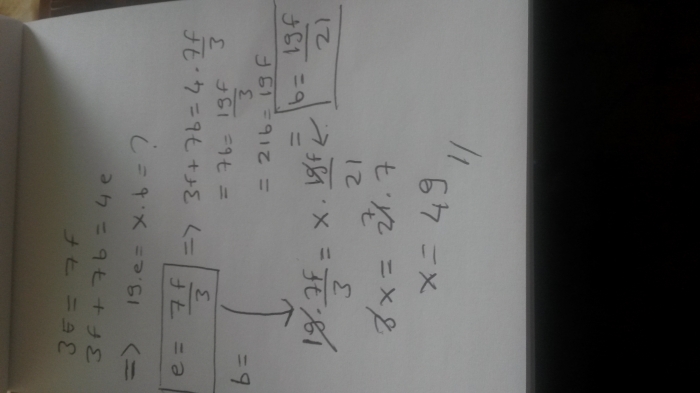 3e = 7f
3f + 7b = 4e
=> 19.e = x.b = ?
e = 7f/3 => 3f + 7b = 4 . 7f/3
= 7b = 19f/3
= 21b = 19f
b = b = 19f/21
19 . 7f/3 = x . 19f/21
3x = 21 . 7
7
x = 49 //